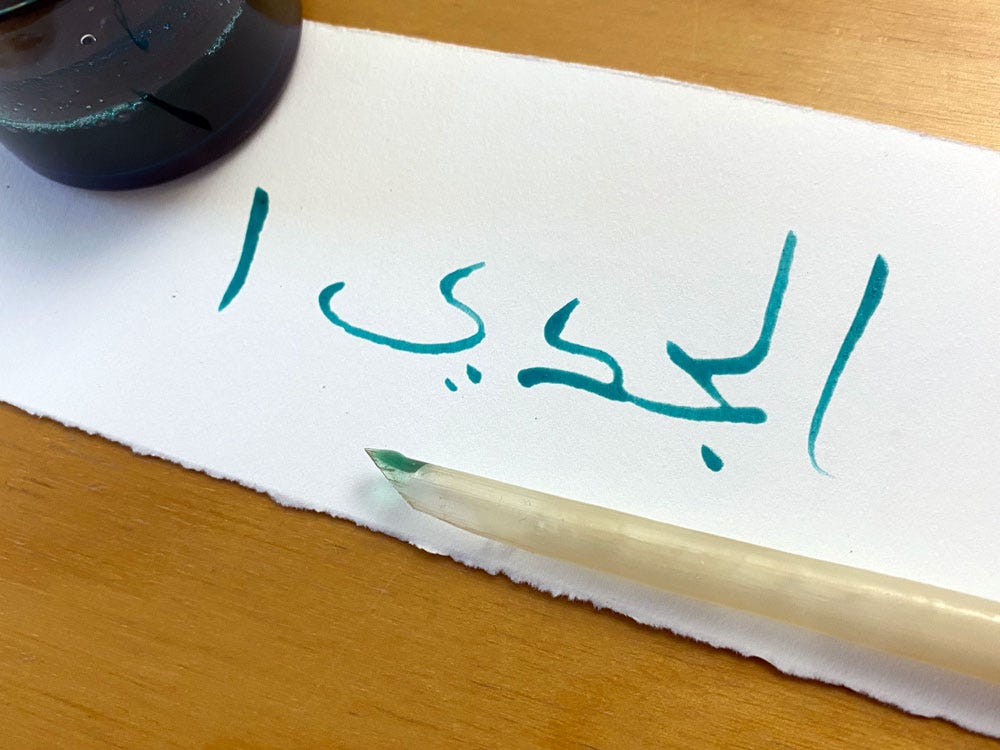 الجدي ا